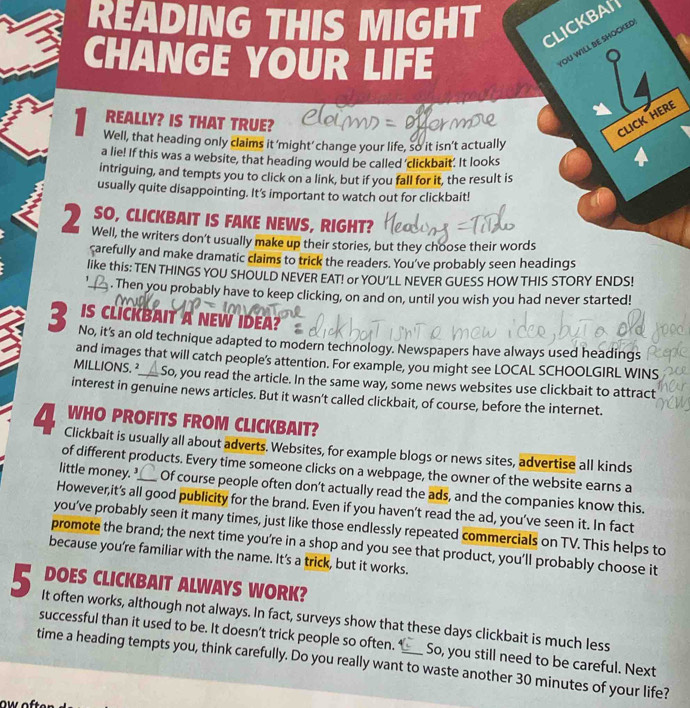 READING THIS MIGHT
CHANGE YOUR LIFE
CLICKBAIT
YOU WILL BE SHOCKED!
CLICK HERE
1 REALLY? IS THAT TRUE? claims = offer more
Well, that heading only claims it 'might' change your life, so it isn't actually
a lie! If this was a website, that heading would be called 'clickbait'. It looks
intriguing, and tempts you to click on a link, but if you fall for it, the result is
usually quite disappointing. It's important to watch out for clickbait!
2 SO, CLICKBAIT IS FAKE NEWS, RIGHT? Heading =
Well, the writers don't usually make up their stories, but they choose their words
carefully and make dramatic claims to trick the readers. You've probably seen headings
like this: TEN THINGS YOU SHOULD NEVER EAT! or YOU'LL NEVER GUESS HOW THIS STORY ENDS!
1 . Then you probably have to keep clicking, on and on, until you wish you had never started!
make up =
3 IS CLICKBAIT A NEW IDEA? = click bait isn't a new idea, but a old
No, it's an old technique adapted to modern technology. Newspapers have always used headings
and images that will catch people's attention. For example, you might see LOCAL SCHOOLGIRL WINS
MILLIONS. 2 So, you read the article. In the same way, some news websites use clickbait to attract
interest in genuine news articles. But it wasn't called clickbait, of course, before the internet.
4 WHO PROFITS FROM CLICKBAIT?
Clickbait is usually all about adverts. Websites, for example blogs or news sites, advertise all kinds
of different products. Every time someone clicks on a webpage, the owner of the website earns a
little money. 3 Of course people often don't actually read the ads, and the companies know this.
However,it's all good publicity for the brand. Even if you haven't read the ad, you've seen it. In fact
you've probably seen it many times, just like those endlessly repeated commercials on TV. This helps to
promote the brand; the next time you're in a shop and you see that product, you'll probably choose it
because you're familiar with the name. It's a trick, but it works.
5 DOES CLICKBAIT ALWAYS WORK?
It often works, although not always. In fact, surveys show that these days clickbait is much less
successful than it used to be. It doesn't trick people so often. 4 So, you still need to be careful. Next
time a heading tempts you, think carefully. Do you really want to waste another 30 minutes of your life?